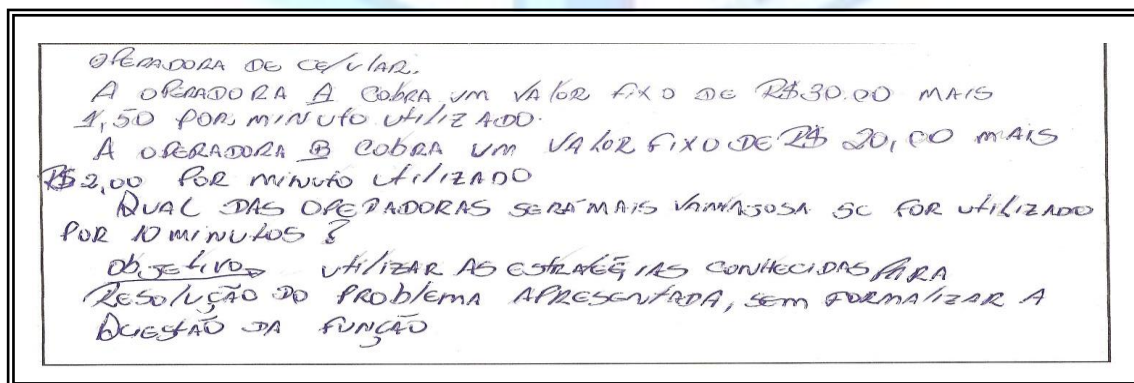 OPERADORA DE CELULAR.
A OPERADORA A COBRA UM VALOR FIXO DE R$30.00 MAIS
1,50 POR MINUTO UTILIZADO.
A OPERADORA B COBRA UM VALOR FIXO DE R$ 20,00 MAIS
R$2,00 POR MINUTO UTILIZADO
QUAL DAS OPERADORAS SERÁ MAIS VANTAJOSA SE FOR UTILIZADO
POR 10 MINUTOS ?
OBJETIVO UTILIZAR AS ESTRATÉGIAS CONHECIDAS PARA
RESOLUÇÃO DO PROBLEMA APRESENTADA, SEM FORMALIZAR A
QUESTÃO DA FUNÇÃO